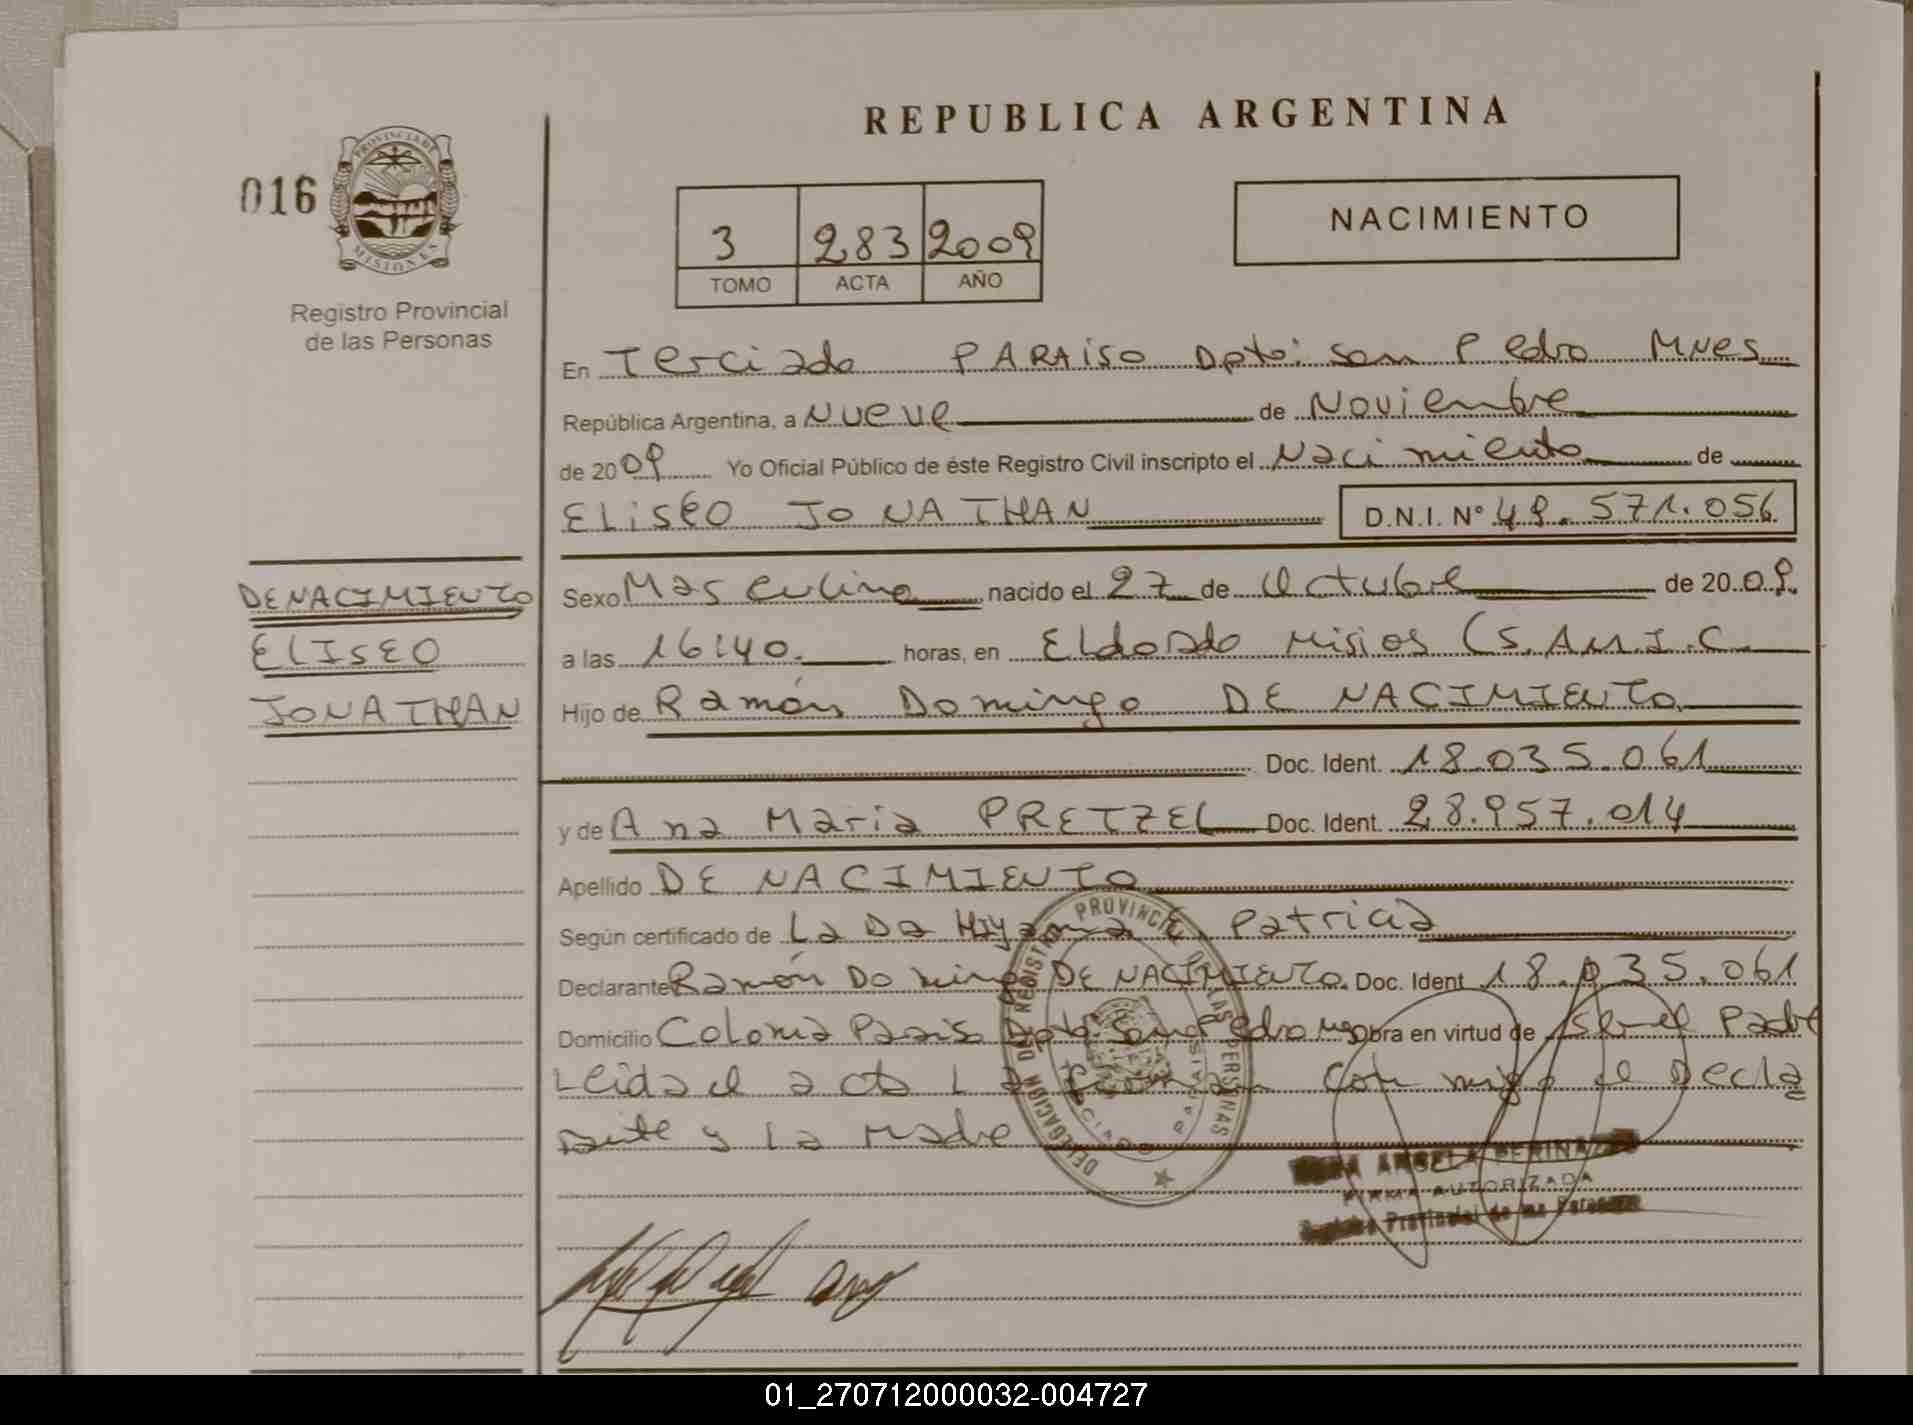 REPUBLICA ARGENTINA
016
PROVINCIA DE
MISIONES
Registro Provincial
de las Personas
3 283 2009
TOMO ACTA AÑO
NACIMIENTO
En Terciado PARAiSO Dpto: San Pedro Mnes
República Argentina, a Nueve de Noviembre
de 2009 Yo Oficial Público de éste Registro Civil inscripto el Nacimiento de
ELiSEO JONATHAN D.N.I. N° 49.571.056
DE NACIMIENTO
ELISEO
JONATHAN
Sexo Masculino nacido el 27 de Octubre de 2009.
a las 16:40. horas, en Eldorado Misios (S.A.M.I.C.
Hijo de Ramón Domingo DE NACIMIENTO
Doc. Ident. 18.035.061
y de Ana Maria PRETZEL Doc. Ident. 28.957.014
Apellido DE NACIMIENTO
Según certificado de La Da Patricia
Declarante Ramón Domingo DE NACIMIENTO. Doc. Ident 18.035.061
Domicilio Colonia Paraiso Dpto San Pedro obra en virtud de ser el Padre
Leida el acta La firman con migo el Decla
rante y La Madre
DELEGACION DEL REGISTRO PROVINCIAL DE LAS PERSONAS
ANGELA
FIRMA AUTORIZADA
Registro Provincial de las Personas
01_270712000032-004727